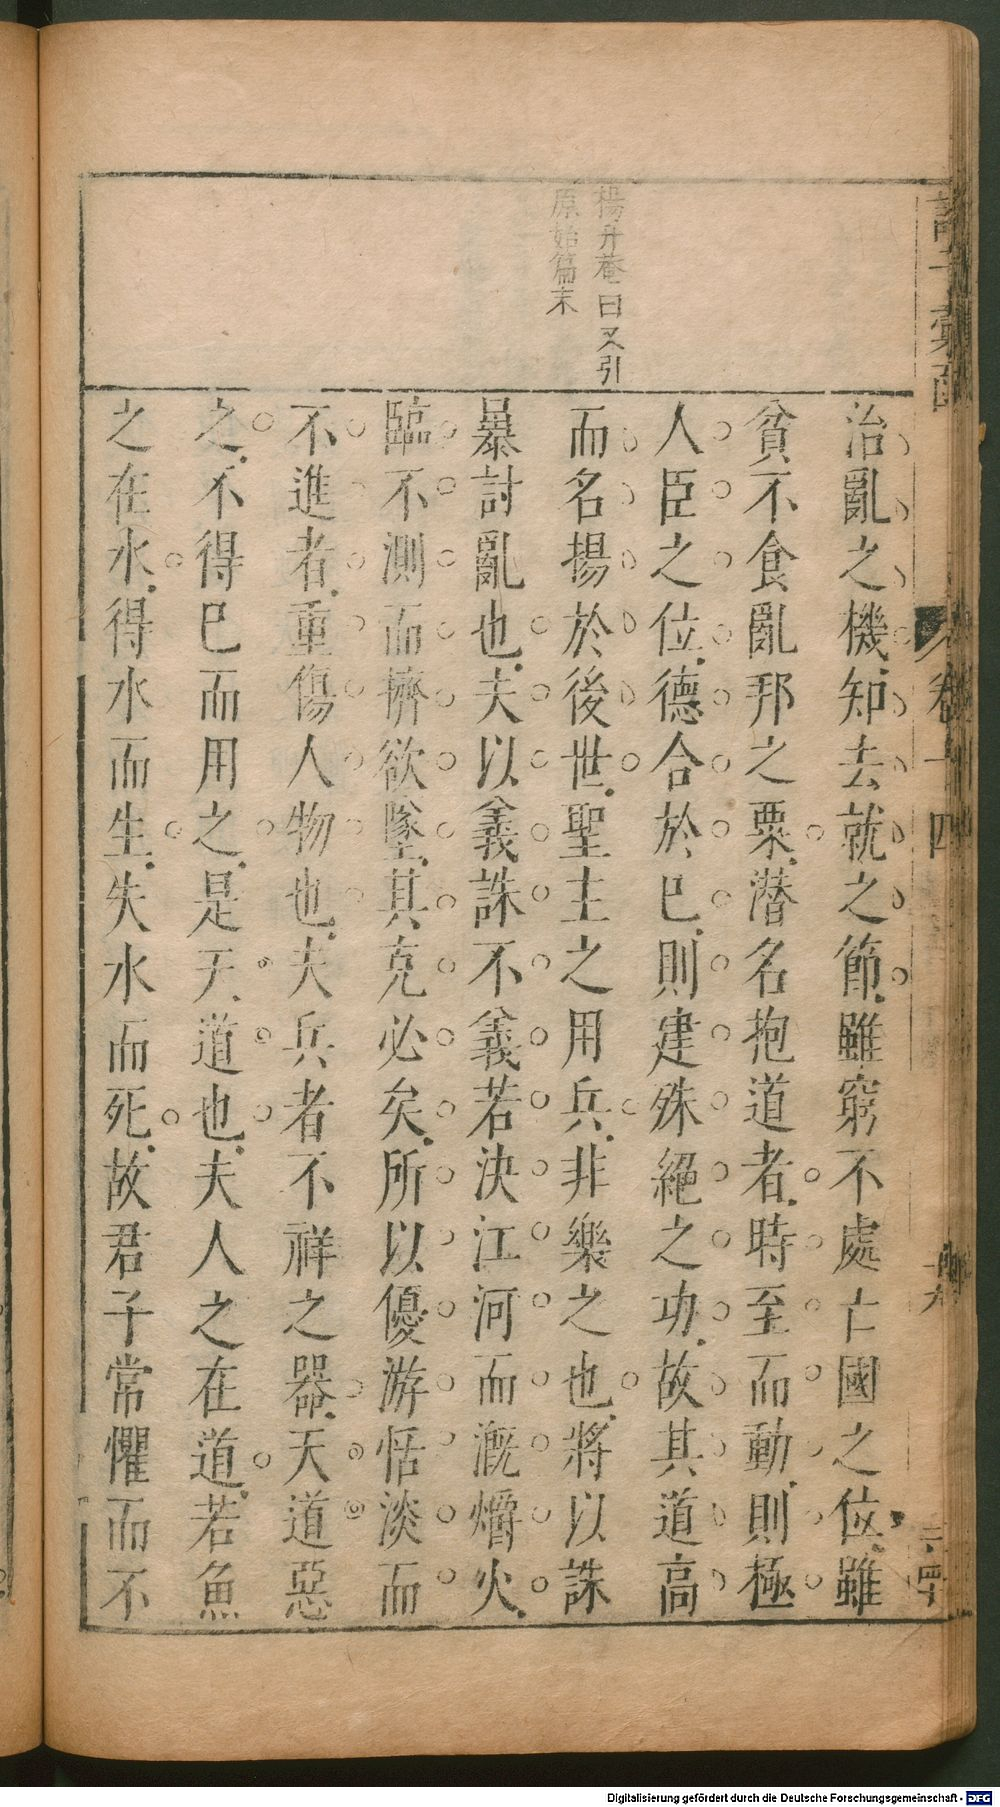 楊升菴曰又引
原始篇末
治亂之機知去就之節雖窮不處亡國之位雖
貧不食亂邦之粟潛名抱道者時至而動則極
人臣之位德合於己則建殊絕之功故其道高
而名揚於後世聖主之用兵非樂之也將以誅
暴討亂也夫以義誅不義若決江河而溉爝火
臨不測而擠欲墜其克必矣所以優游恬淡而
不進者重傷人物也夫兵者不祥之器天道惡
之不得已而用之是天道也夫人之在道若魚
之在水得水而生失水而死故君子常懼而不
卷十四
Digitalisierung gefördert durch die Deutsche Forschungsgemeinschaft - DFG